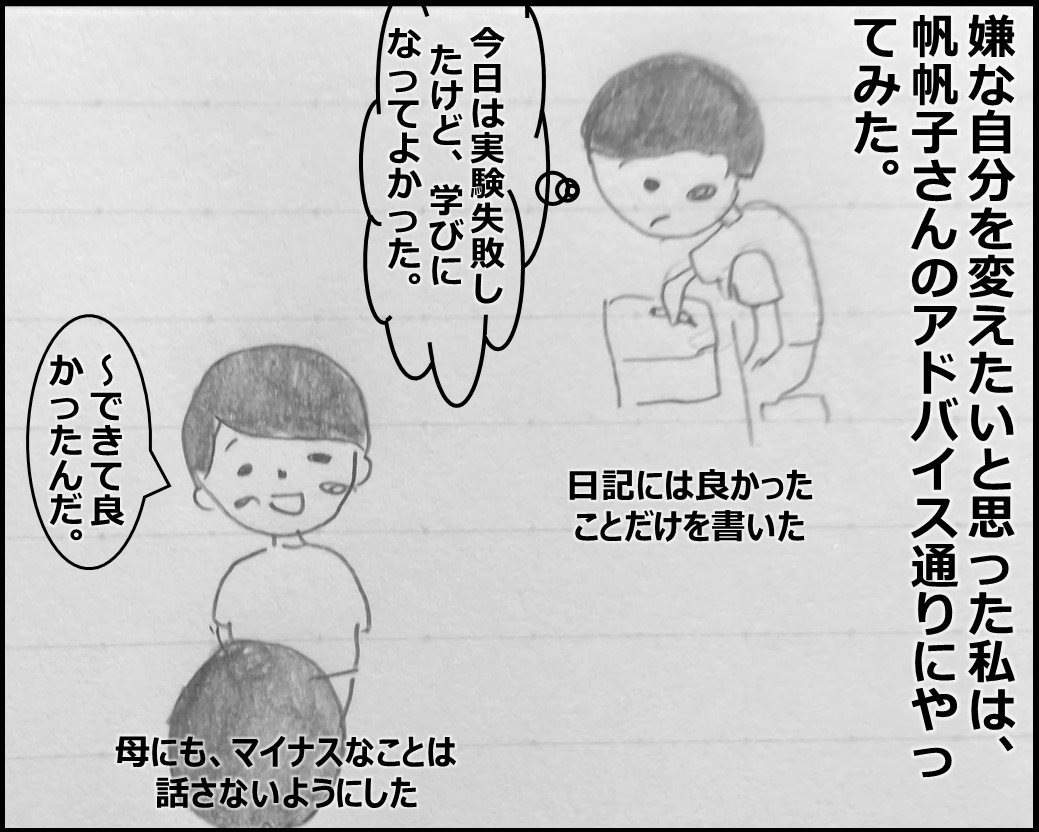 嫌な自分を変えたいと思った私は、
帆帆子さんのアドバイス通りにやっ
てみた。
今日は実験失敗し
たけど、学びに
なってよかった。
日記には良かった
ことだけを書いた
～できて良
かったんだ。
母にも、マイナスなことは
話さないようにした